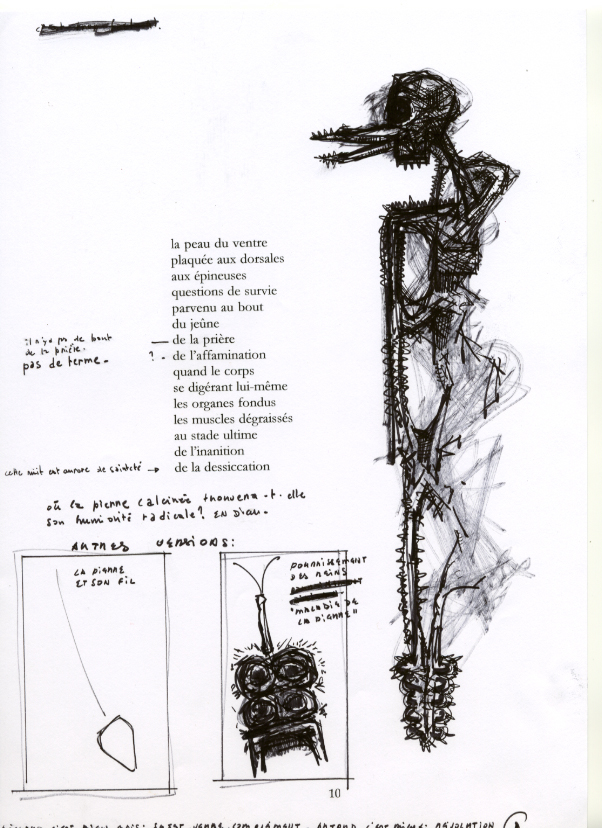 la peau du ventre
plaquée aux dorsales
aux épineuses
questions de survie
parvenu au bout
du jeûne
il n'y a pas de bout
de la prière.
pas de terme -
— de la prière
? - de l'affamination
quand le corps
se digérant lui-même
les organes fondus
les muscles dégraissés
au stade ultime
de l'inanition
cette nuit est aurore de sainteté → de la dessiccation
où la pierre calcinée trouvera-t-elle
son humidité radicale? EN Dieu-
AUTRES VERSIONS:
LA PIERRE
ET SON FIL
POURRISSEMENT
DES REINS
"MALADIE DE
LA PIERRE"
10